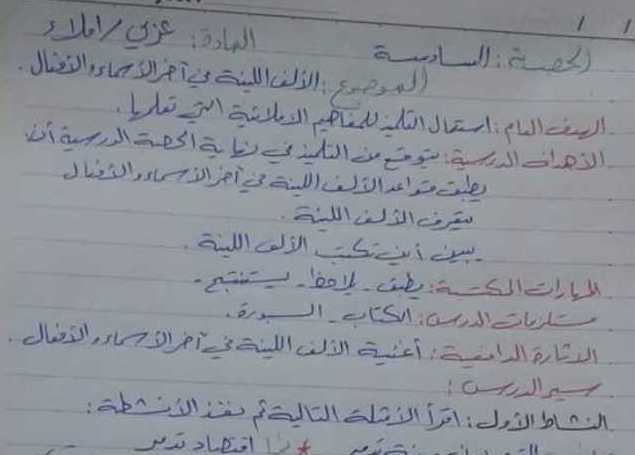 / /
الحصة: السادسة المادة: عربي / املاء
الموضوع: الألف اللينة في آخر الأسماء والأفعال.
الهدف العام: استعمال التلميذ للمفاهيم الإملائية التي تعلمها.
الأهداف الدرسية: يتوقع من التلميذ في نهاية الحصة الدرسية أن:
يطبق قواعد الألف اللينة في آخر الأسماء والأفعال
يتعرف الألف اللينة.
يبين أين تكتب الألف اللينة.
المهارات المكتسبة: يطبق - يلاحظ - يستنتج -
مستلزمات الدرس: الكتاب - السبورة.
الاثارة الدافعية: أغنية الألف اللينة في آخر الأسماء والأفعال.
سير الدرس:
النشاط الأول: اقرأ الأمثلة التالية ثم نفذ الأنشطة:
تدمر * اقتصاد تدمر